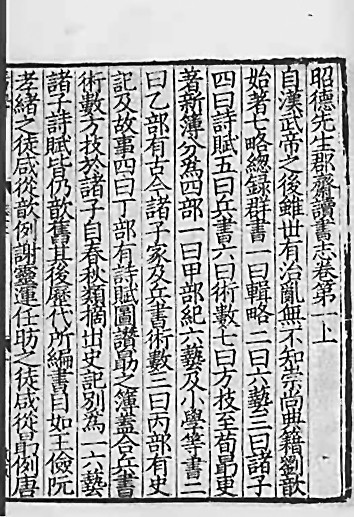 昭德先生郡齋讀書志卷第一上
自漢武帝之後雖世有治亂無不知崇尚典籍劉歆
始著七略總録群書一曰輯略二曰六藝三曰諸子
四曰詩賦五曰兵書六曰術數七曰方技至荀勗更
著新簿分爲四部一曰甲部紀六藝及小學等書二
曰乙部有古今諸子家及兵書術數三曰丙部有史
記及故事四曰丁部有詩賦圖讃勗之簿蓋合兵書
術數方技於諸子自春秋類摘出史記别爲一六藝
諸子詩賦皆仍歆舊其後歷代所編書目如王儉阮
孝緒之徒咸從歆例謝靈運任昉之徒咸從勗例唐